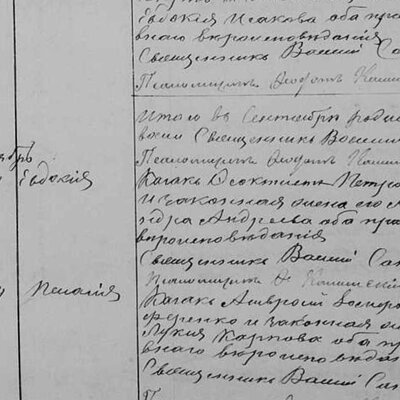 Евдокія Исакова оба пра
внаго вѣроисповѣданія
Священникъ Василій Са
Псаломщикъ Ѳеодотъ
Итого въ Сентябрѣ роди
Священникъ Василі
Псаломщикъ Ѳеодотъ
ябрь Евдокія
Казакъ Ѳеоктистъ Петро
и законная жена его А
ндра Андреева оба пра
вѣроисповѣданія
Священникъ Василій Сап
Псаломщикъ Ѳ
Пелагія
Казакъ Амвросій
ференко и законная
Лукія Карпова оба пр
внаго вѣроисповѣдан
Священникъ Василій Сап